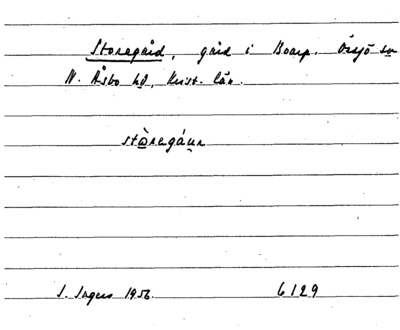 Storegård, gård i Boarp. Örsjö sn
N. Åsbo hd, Krist. län.
stòregáur
S. Ingers 1956.
6129